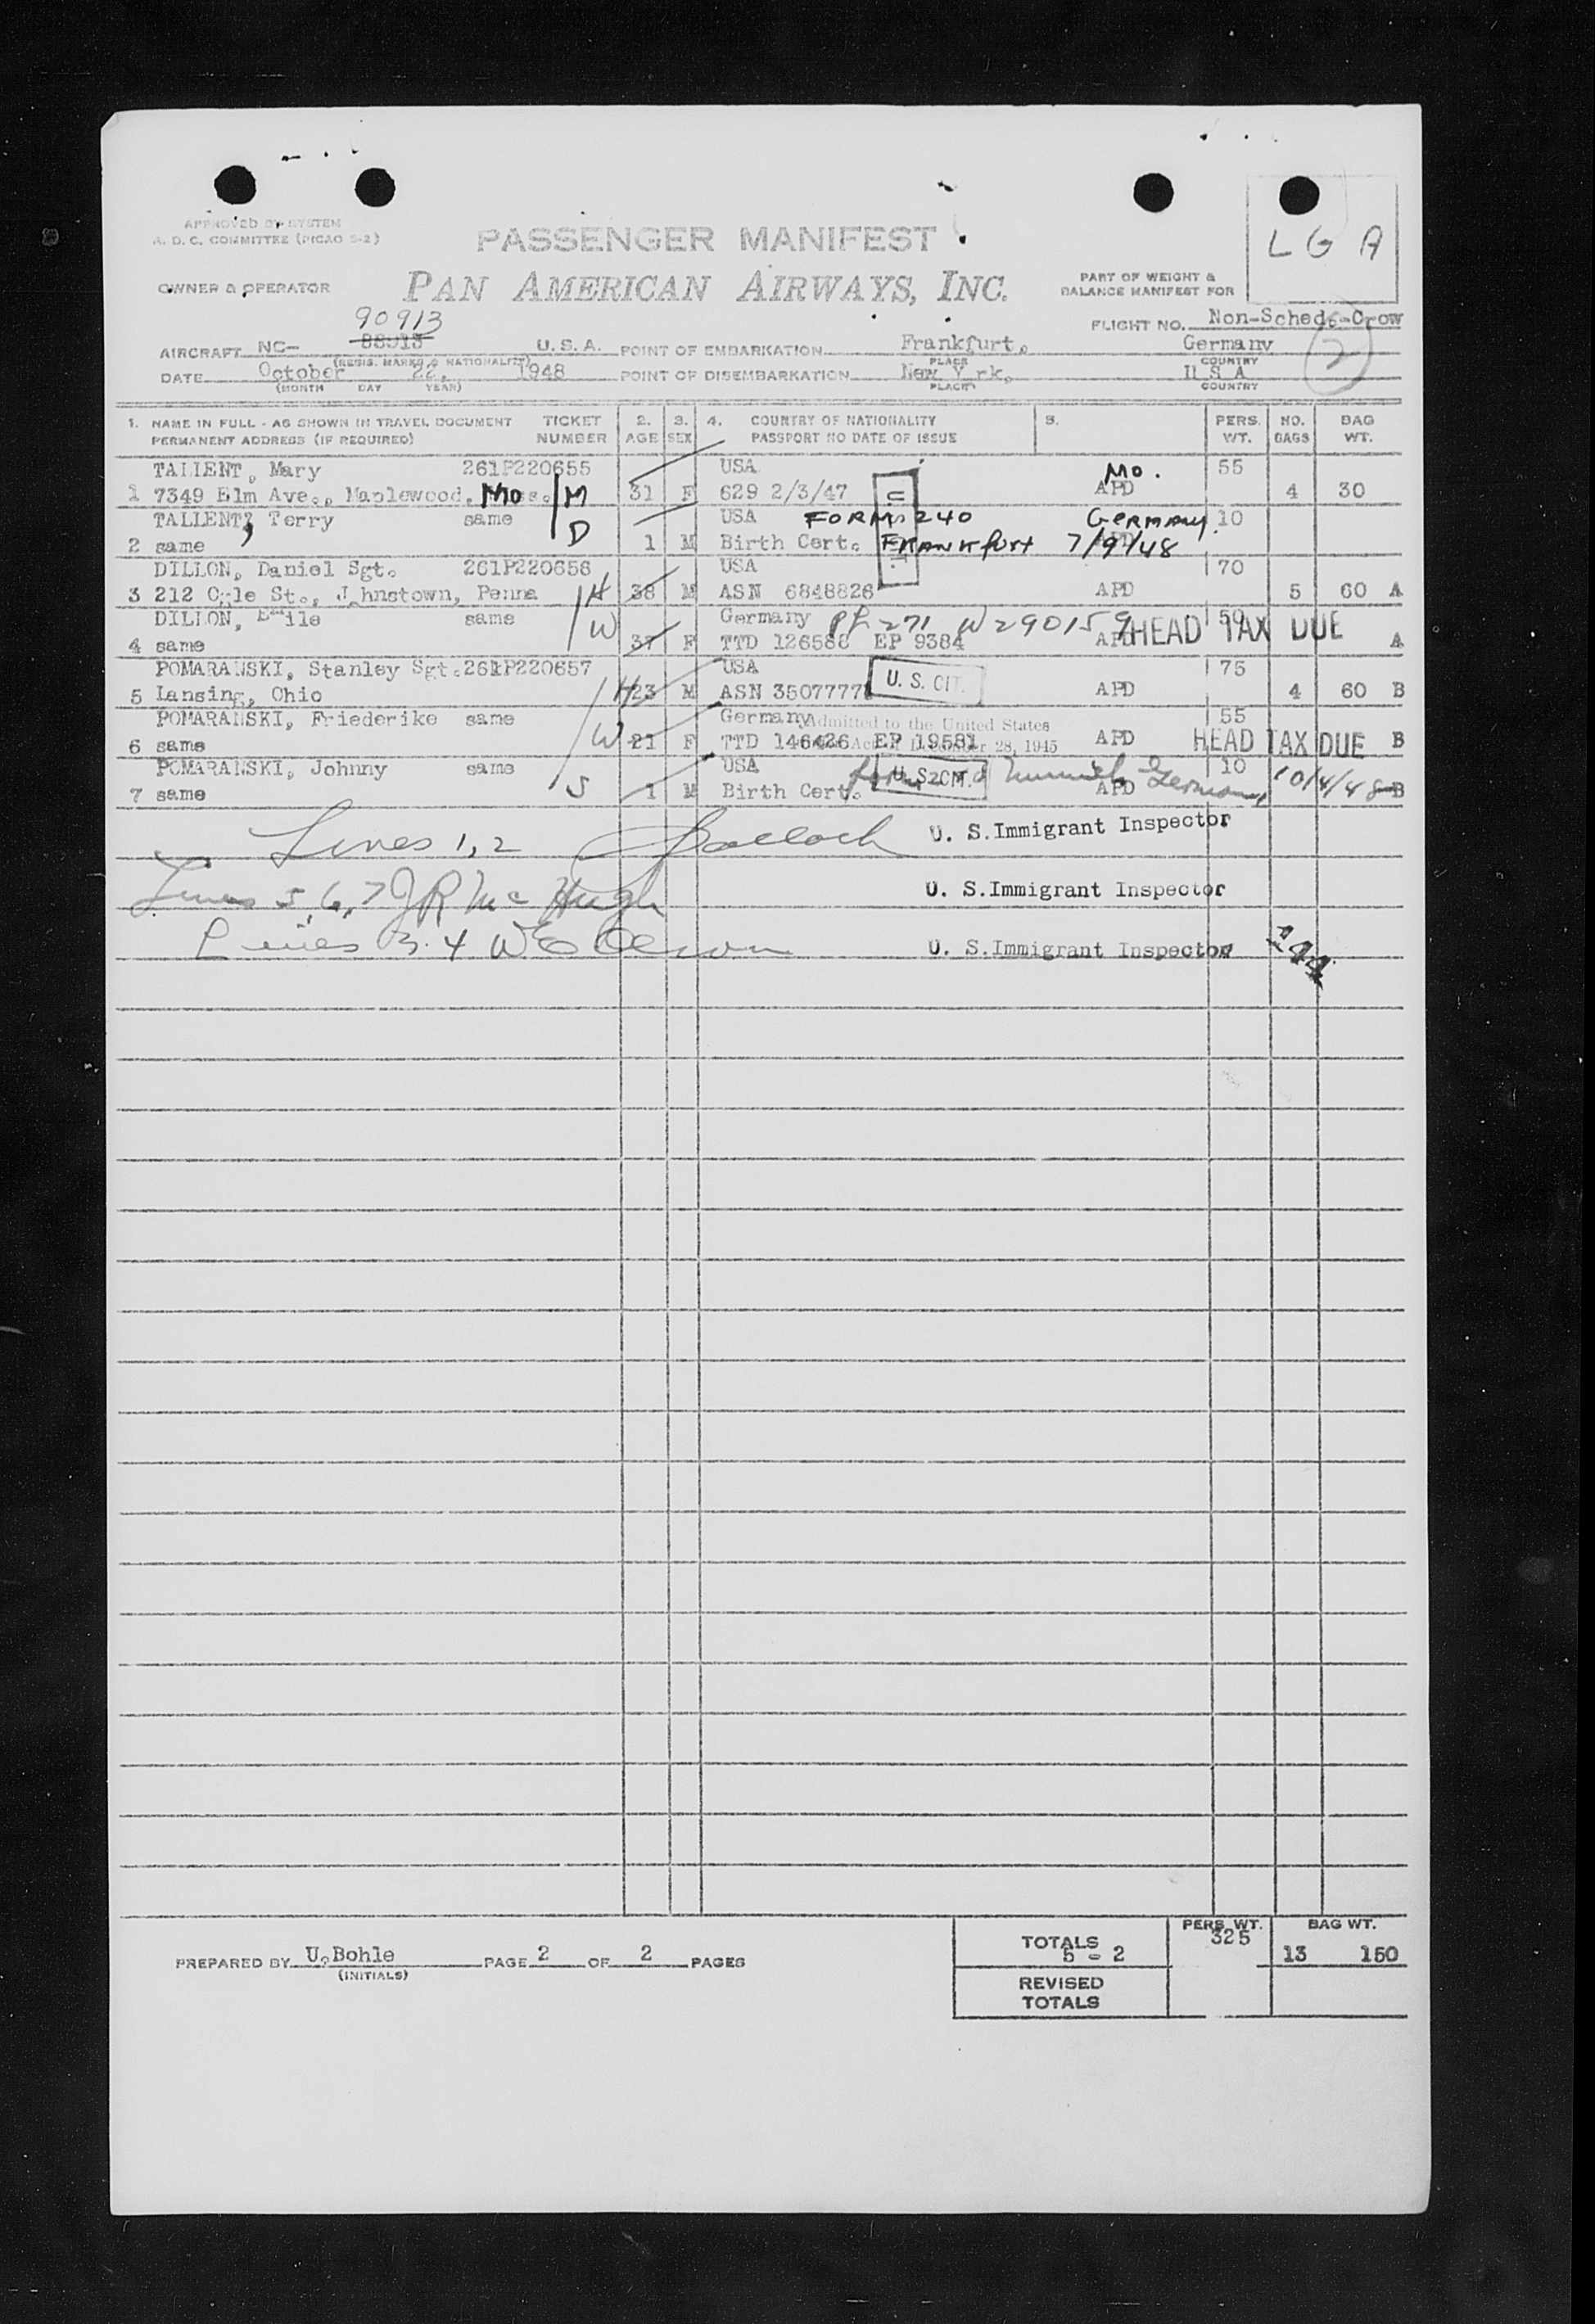 APPROVED BY SYSTEM
A. D. C. COMMITTEE (PICAO S-2)
PASSENGER MANIFEST
LGA
OWNER & OPERATOR PAN AMERICAN AIRWAYS, INC.
PART OF WEIGHT &
BALANCE MANIFEST FOR
90913
FLIGHT NO. Non-Sched.-Crow
AIRCRAFT NC- 88913 U.S.A. POINT OF EMBARKATION Frankfurt, Germany 2
(REGIS. MARKS & NATIONALITY) PLACE COUNTRY
DATE October 22, 1948 POINT OF DISEMBARKATION New Y rk, U S A
(MONTH DAY YEAR) PLACE COUNTRY
1. NAME IN FULL - AS SHOWN IN TRAVEL DOCUMENT TICKET 2. 3. 4. COUNTRY OF NATIONALITY 5. PERS. NO. BAG
PERMANENT ADDRESS (IF REQUIRED) NUMBER AGE SEX PASSPORT NO DATE OF ISSUE WT. BAGS WT.
TALLENT, Mary 261P220655 USA Mo. 55
1 7349 Elm Ave., Maplewood, Mo M 31 F 629 2/3/47 APD 4 30
TALLENT, Terry same USA FORM 240 GERMANY 10
2 same D 1 M Birth Cert. FRANKfurt 7/9/48
DILLON, Daniel Sgt. 261P220656 USA 70
3 212 Ogle St., J hnstown, Penna H 38 M ASN 6848826 APD 5 60 A
DILLON, Emile same W Germany PL 271 W290159 50
4 same 37 F TTD 126588 EP 9384 APD HEAD TAX DUE A
POMARANSKI, Stanley Sgt. 261P220657 USA 75
5 Lansing, Ohio H 23 M ASN 35077778 U. S. CIT. APD 4 60 B
POMARANSKI, Friederike same Germany Admitted to the United States 55
6 same W 21 F TTD 146426 EP 19581 28, 1945 APD HEAD TAX DUE B
POMARANSKI, Johnny same USA U. S. CIT. Munich, Germany 10 10/4/48
7 same S 1 M Birth Cert. APD B
Lines 1, 2 U. S. Immigrant Inspector
Lines 5, 6, 7 JR McHugh U. S. Immigrant Inspector
Lines 3. 4 U. S. Immigrant Inspector
PREPARED BY U.Bohle PAGE 2 OF 2 PAGES
(INITIALS)
PERS. WT. BAG WT.
TOTALS 5 - 2 325 13 150
REVISED
TOTALS